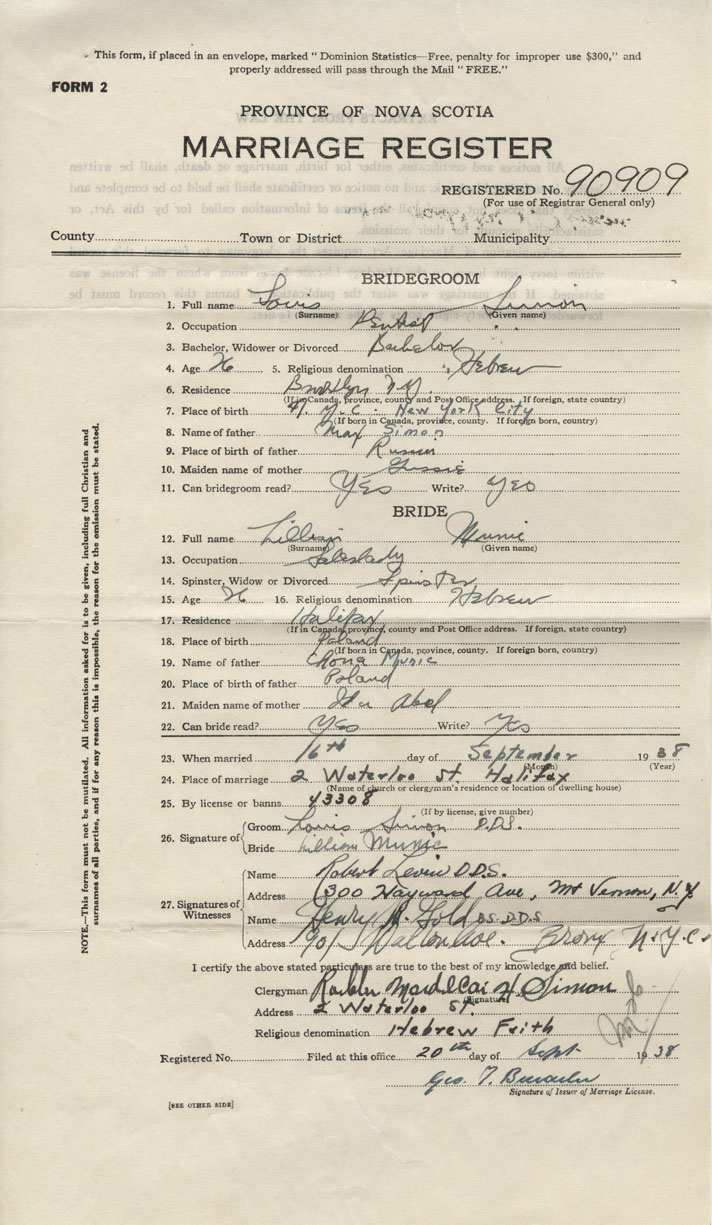 This form, if placed in an envelope, marked "Dominion Statistics—Free, penalty for improper use $300," and
properly addressed will pass through the Mail "FREE."
FORM 2
PROVINCE OF NOVA SCOTIA
MARRIAGE REGISTER
REGISTERED No. 90909
(For use of Registrar General only)
County Town or District Municipality
BRIDEGROOM
1. Full name Louis Simon
(Surname) (Given name)
2. Occupation Dentist
3. Bachelor, Widower or Divorced Bachelor
4. Age 26 5. Religious denomination Hebrew
6. Residence Brooklyn N.Y.
(If in Canada, province, county and Post Office address. If foreign, state country)
7. Place of birth N.Y.C. New York City
(If born in Canada, province, county. If foreign born, country)
8. Name of father Max Simon
9. Place of birth of father Russia
10. Maiden name of mother Gussie
11. Can bridegroom read? Yes Write? Yes
BRIDE
12. Full name Lillian Munic
(Surname) (Given name)
13. Occupation Saleslady
14. Spinster, Widow or Divorced Spinster
15. Age 26 16. Religious denomination Hebrew
17. Residence Halifax
(If in Canada, province, county and Post Office address. If foreign, state country)
18. Place of birth Poland
(If born in Canada, province, county. If foreign born, country)
19. Name of father Chona Munic
20. Place of birth of father Poland
21. Maiden name of mother Ida Abel
22. Can bride read? Yes Write? Yes
23. When married 16th day of September 1938
(Month) (Year)
24. Place of marriage 2 Waterloo St. Halifax
(Name of church or clergyman's residence or location of dwelling house)
25. By license or banns 43308
(If by license, give number)
26. Signature of
Groom Louis Simon D.D.S.
Bride Lillian Munic
27. Signatures of Witnesses
Name Robert Levin D.D.S.
Address 300 Hayward Ave, Mt Vernon, N.Y.
Name Henry R. Gold B.S. D.D.S
Address 901 Walton Ave. Bronx N.Y.C.
I certify the above stated particulars are true to the best of my knowledge and belief.
Clergyman Rabbi Mordecai H. Simon
(Signature)
Address 2 Waterloo St.
Religious denomination Hebrew Faith
Registered No. Filed at this office 20th day of Sept 1938
Geo. T.
Signature of Issuer of Marriage License.
[SEE OTHER SIDE]
NOTE.—This form must not be mutilated. All information asked for is to be given, including full Christian and
surnames of all parties, and if for any reason this is impossible, the reason for the omission must be stated.